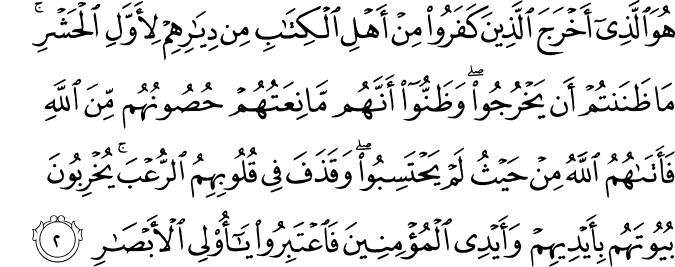 هُوَ ٱلَّذِىٓ أَخْرَجَ ٱلَّذِينَ كَفَرُوا۟ مِنْ أَهْلِ ٱلْكِتَـٰبِ مِن دِيَـٰرِهِمْ لِأَوَّلِ ٱلْحَشْرِ ۚ
مَا ظَنَنتُمْ أَن يَخْرُجُوا۟ ۖ وَظَنُّوٓا۟ أَنَّهُم مَّانِعَتُهُمْ حُصُونُهُم مِّنَ ٱللَّهِ
فَأَتَىٰهُمُ ٱللَّهُ مِنْ حَيْثُ لَمْ يَحْتَسِبُوا۟ ۖ وَقَذَفَ فِى قُلُوبِهِمُ ٱلرُّعْبَ ۚ يُخْرِبُونَ
بُيُوتَهُم بِأَيْدِيهِمْ وَأَيْدِى ٱلْمُؤْمِنِينَ فَٱعْتَبِرُوا۟ يَـٰٓأُو۟لِى ٱلْأَبْصَـٰرِ ٢